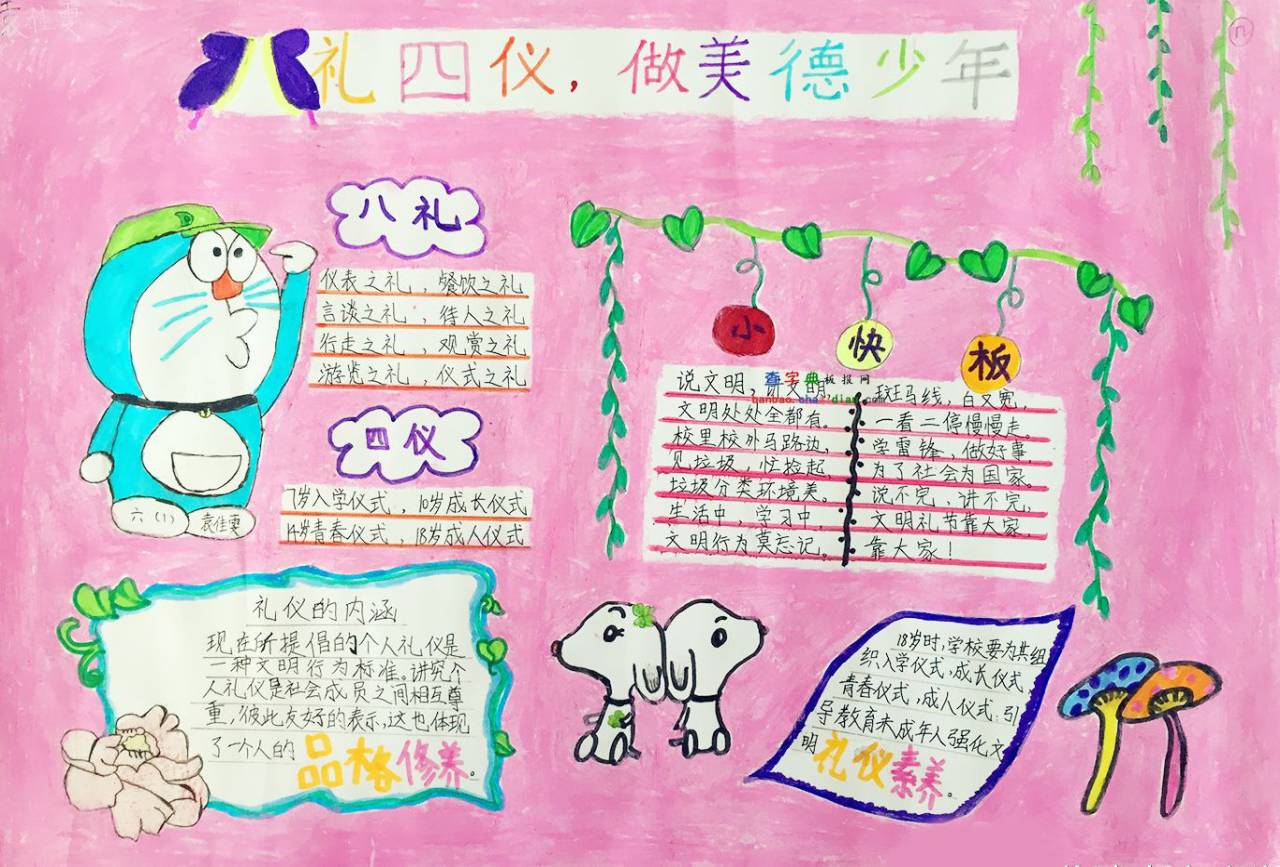 袁佳更
八礼四仪，做美德少年
八礼
仪表之礼，餐饮之礼
言谈之礼，待人之礼
行走之礼，观赏之礼
游览之礼，仪式之礼
四仪
7岁入学仪式，10岁成长仪式
14岁青春仪式，18岁成人仪式
六（1）
袁佳更
小快板
查字典板报网
说文明，讲文明，
文明处处全都有。
校里校外马路边，
见垃圾，忙捡起，
垃圾分类环境美。
生活中，学习中，
文明行为莫忘记。
斑马线，白又宽，
一看二停慢慢走。
学雷锋，做好事，
为了社会为国家。
说不完，讲不完，
文明礼节靠大家，
靠大家！
礼仪的内涵
现在所提倡的个人礼仪是
一种文明行为标准。讲究个
人礼仪是社会成员之间相互尊
重，彼此友好的表示，这也体现
了一个人的品格修养。
18岁时，学校要为其组
织入学仪式，成长仪式，
青春仪式，成人仪式：引
导教育未成年人强化文
明礼仪素养。